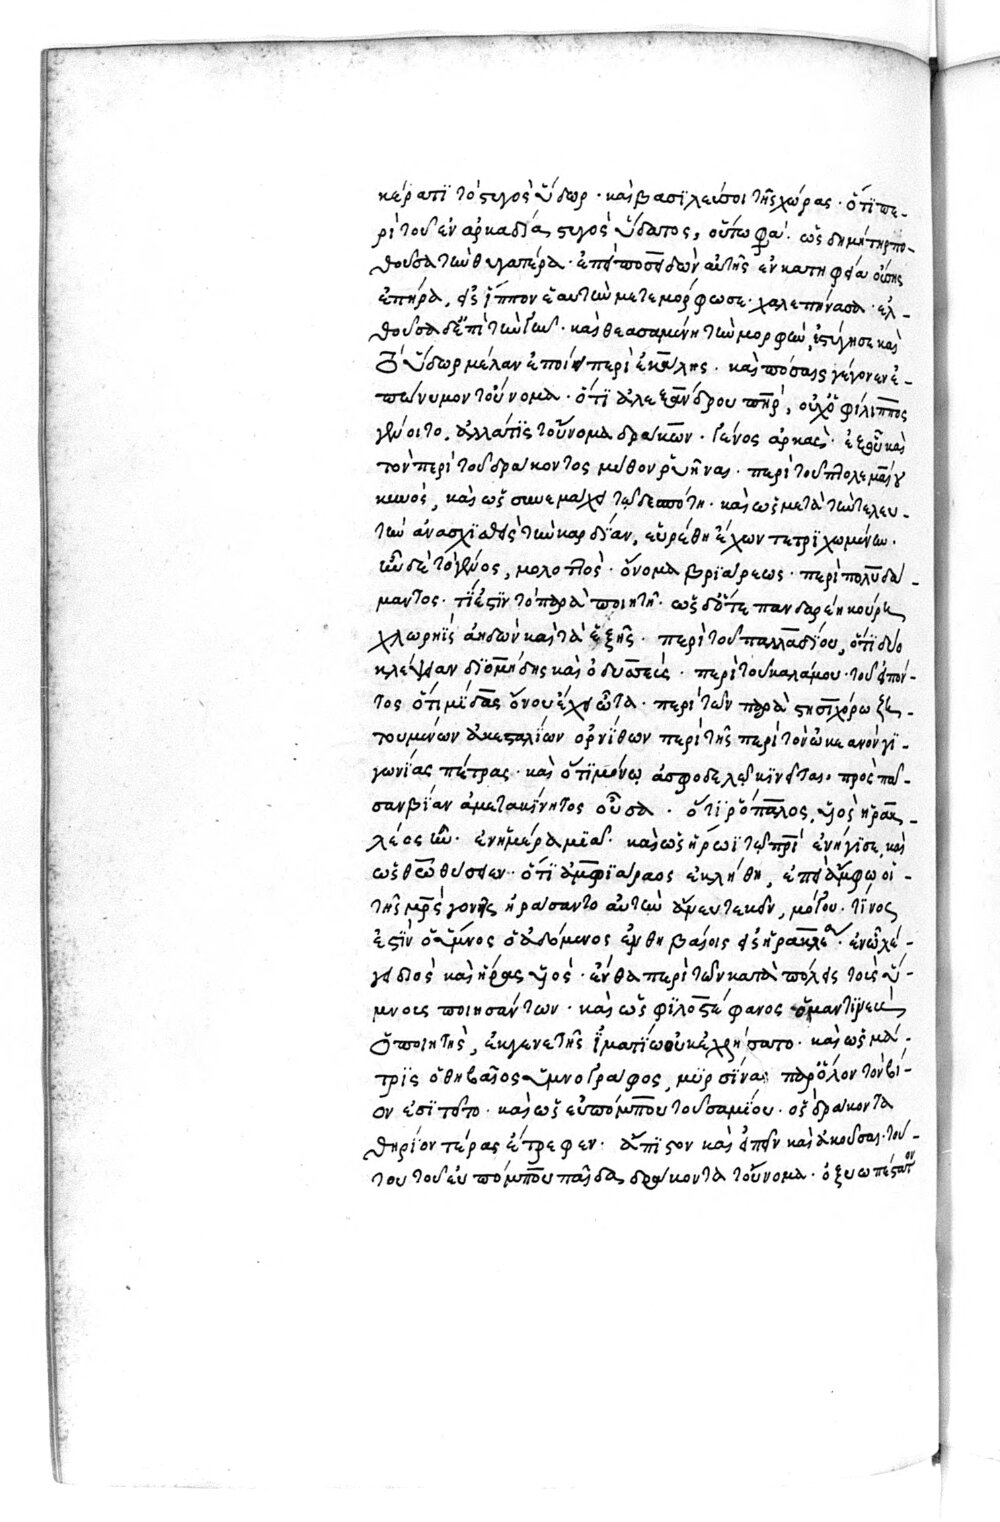 κέρατι τὸ στυγὸς ὕδωρ · καὶ βασιλεύσοι τῆς χώρας · ὅτι πε-
ρὶ τοῦ ἐν ἀρκαδία στυγὸς ὕδατος, οὕτω φα. ὡς δημήτηρ πο-
θοῦσα τὴν θυγατέρα · ἐπεὶ ποσειδῶν αὐτῆς ἐν κατηφεία οὔσης
ἐπῄρα, εἰς ἵππον ἑαυτὴν μετεμόρφωσε · χαλεπήνασα · ἐλ-
θοῦσα δὲ ἐπὶ τὴν πηγὴν · καὶ θεασαμένη τὴν μορφὴν, ἐστύγησε καὶ
τὸ ὕδωρ μέλαν ἐποίησε περὶ ἑκάλης · καὶ πόσαις γέγονεν ἐ-
πώνυμον τοὔνομα · ὅτι ἀλεξάνδρου πατὴρ, οὐχ ὁ φίλιππος
λέγοιτο, ἀλλά τις τοὔνομα δράκων · γένος ἀρκὰς · ἐξ οὗ καὶ
τὸν περὶ τοῦ δράκοντος μῦθον ῥυῆναι · περὶ τοῦ πτολεμαίου
κυνὸς, καὶ ὡς συνεμάχει τῷ δεσπότῃ · καὶ ὡς μετὰ τὴν τελευ-
τὴν ἀνασχισθεὶς τὴν καρδίαν, εὑρέθη ἔχων τετριχωμένην ·
ἦν δὲ τὸ γένος, μολοττὸς · ὄνομα βριάρεως · περὶ πολυδά-
μαντος · τί ἐστιν τὸ παρὰ ποιητῇ · ὡς δ' ὅτε πανδαρέη κούρη
χλωρηὶς ἀηδὼν καὶ τὰ ἑξῆς · περὶ τοῦ παλλαδίου, ὅτι δύο
κλέψαν διομήδης καὶ ὀδυσσεύς · περὶ τοῦ καλάμου · τοῦ εἰπόν-
τος ὅτι μίδας ὄνου ἔχει ὦτα · περὶ τῶν παρὰ στησιχόρω ζη-
τουμένων ἀκεσταλίων ὀρνίθων περὶ τῆς περὶ τὸν ὠκεανὸν γι-
γωνίας πέτρας · καὶ ὅτι μόνω ἀσφοδέλω κινεῖται · πρὸς πᾶ-
σαν βίαν ἀμετακίνητος οὖσα · ὅτι ῥόπαλος, υἱὸς ἡρακ-
λέος ἦν · ἐν ἡμέρα μιᾷ · καὶ ὡς ἥρωϊ τῷ πατρὶ ἐνήγισε, καὶ
ὡς θεῷ θύσειεν · ὅτι ἀμφιάραος ἐκλήθη, ἐπεὶ ἄμφω οἱ
τῆς μητρὸς γονεῖς ἠράσαντο αὐτὴν ἄνευ τεκεῖν, μόγου · τίνος
ἐστὶν ὁ ὕμνος ὁ ἀδόμενος ἐν θηβαίοις εἰς ἡρακλέα · ἐν ᾧ λέ-
γει διὸς καὶ ἥρας υἱὸς · ἔνθα περὶ τῶν κατὰ πόλεις τοὺς ὕ-
μνους ποιησάντων · καὶ ὡς φιλοστέφανος ὁ μαντινεὺς
ὁ ποιητὴς, ἐκ γενετῆς ἱματίω οὐκ ἐχρήσατο · καὶ ὡς μά-
τρις ὁ θηβαῖος ὑμνογράφος, μυρσίνας παρ' ὅλον τὸν βί-
ον ἐσιτεῖτο · καὶ ὡς εὐπόμπου τοῦ σαμίου · ὃς δράκοντα
θηρίον τέρας ἔτρεφεν · ἄπιστον καὶ εἰπεῖν καὶ ἀκοῦσαι · τού-
του τοῦ εὐπόμπου παῖδα δράκοντα τοὔνομα · ὀξυωπέστατον